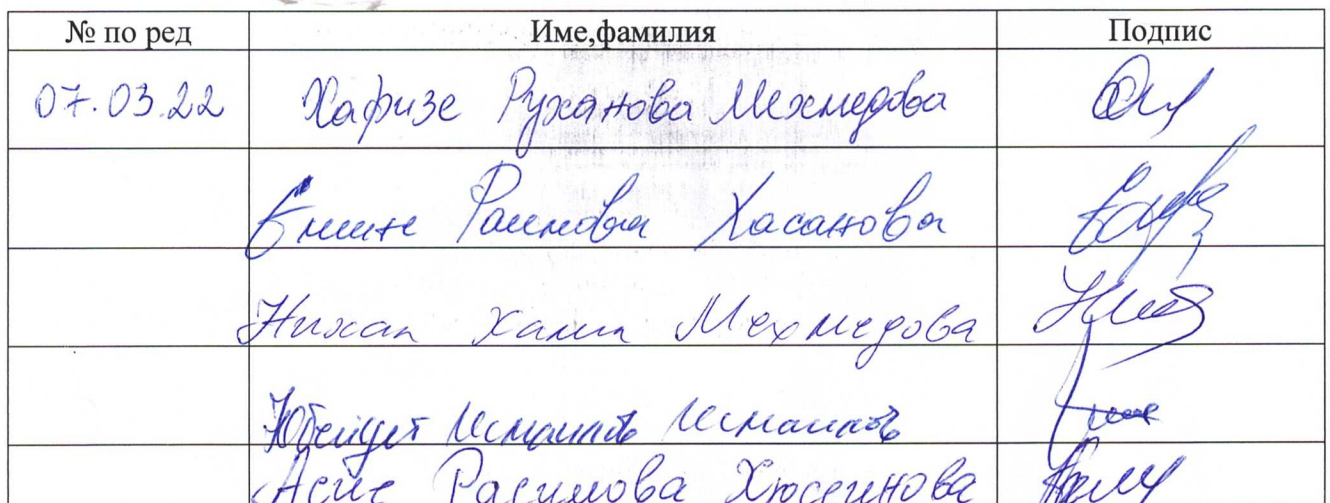 № по ред Име,фамилия Подпис
07.03.22 Хафизе Руханова Мехмедова
Емине Раимова Хасанова
Нихан Халил Мехмедова
Юбейдет Исмаилов Исмаилов
Асие Расимова Хюсеинова